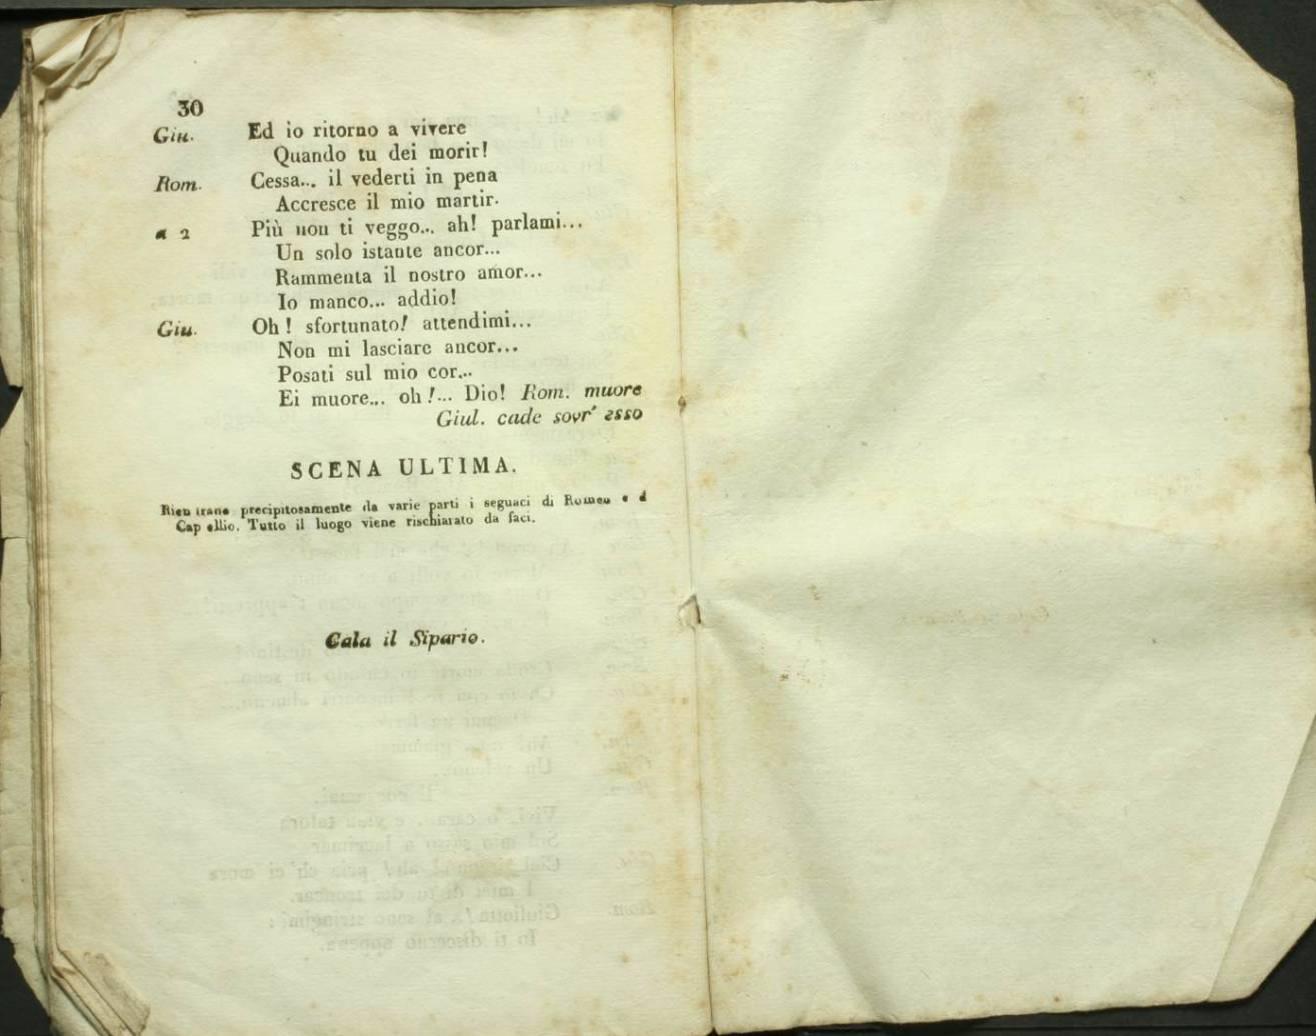 30
Giu. Ed io ritorno a vivere
Quando tu dei morir!
Rom. Cessa... il vederti in pena
Accresce il mio martir.
a 2 Più non ti veggo... ah! parlami...
Un solo istante ancor...
Rammenta il nostro amor...
Io manco... addio!
Giu. Oh! sfortunato! attendimi...
Non mi lasciare ancor...
Posati sul mio cor...
Ei muore... oh!... Dio! Rom. muore
Giul. cade sovr' esso
SCENA ULTIMA.
Rientrano precipitosamente da varie parti i seguaci di Romeo e d
Capellio. Tutto il luogo viene rischiarato da faci.
Cala il Sipario.